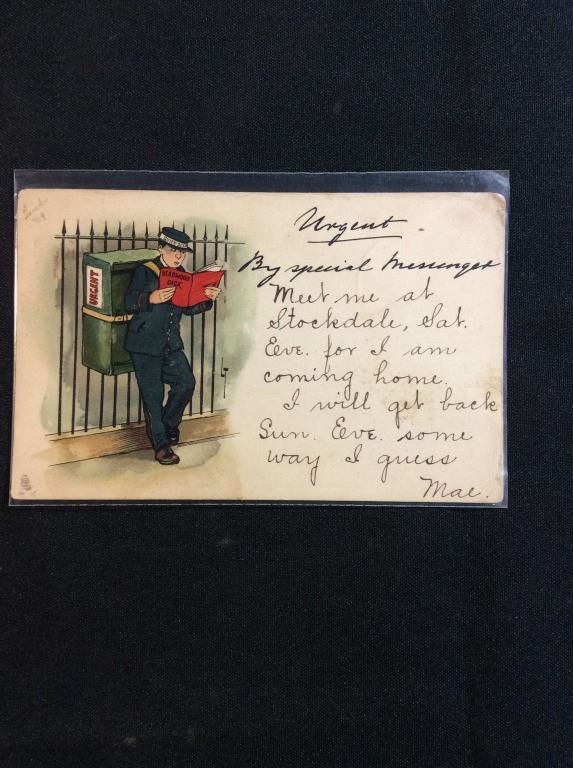 '09
Urgent
By special Messenger
Meet me at
Stockdale, Sat.
Eve. for I am
coming home.
I will get back
Sun. Eve. some
way I guess
Mae.
URGENT
DEADWOOD
DICK